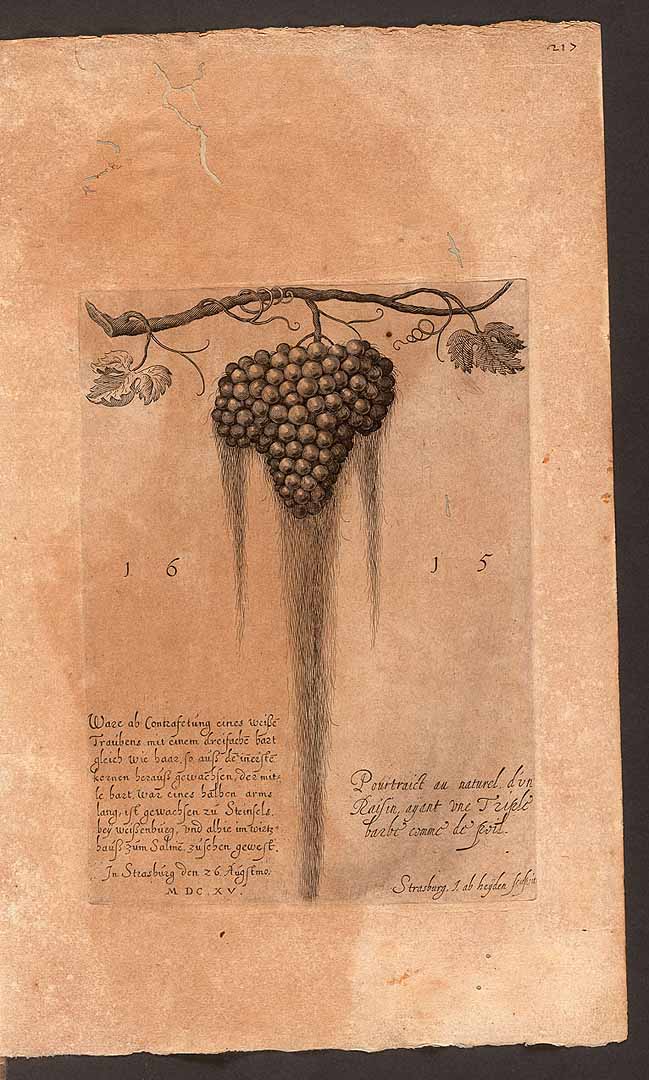 217
1 6 1 5
Ware ab Contrafetung eines weiße
Traubens mit einem dreifache bart
gleich wie haar, so auß de meiste
kernen herauß gewachsen, der mit-
le bart war eines halben arms
lang, ist gewachsen zu Steinsels
bey weißenburg, und alhie im wirtz-
hauß zum Salmē zusehen gewest.
In Strasburg den 26 Augstmo.
M DC. XV.
Pourtraict au naturel. dvn
Raisin, ayant vne Triple
barbe comme de poil.
Strasburg. I. ab heyden sculpsit